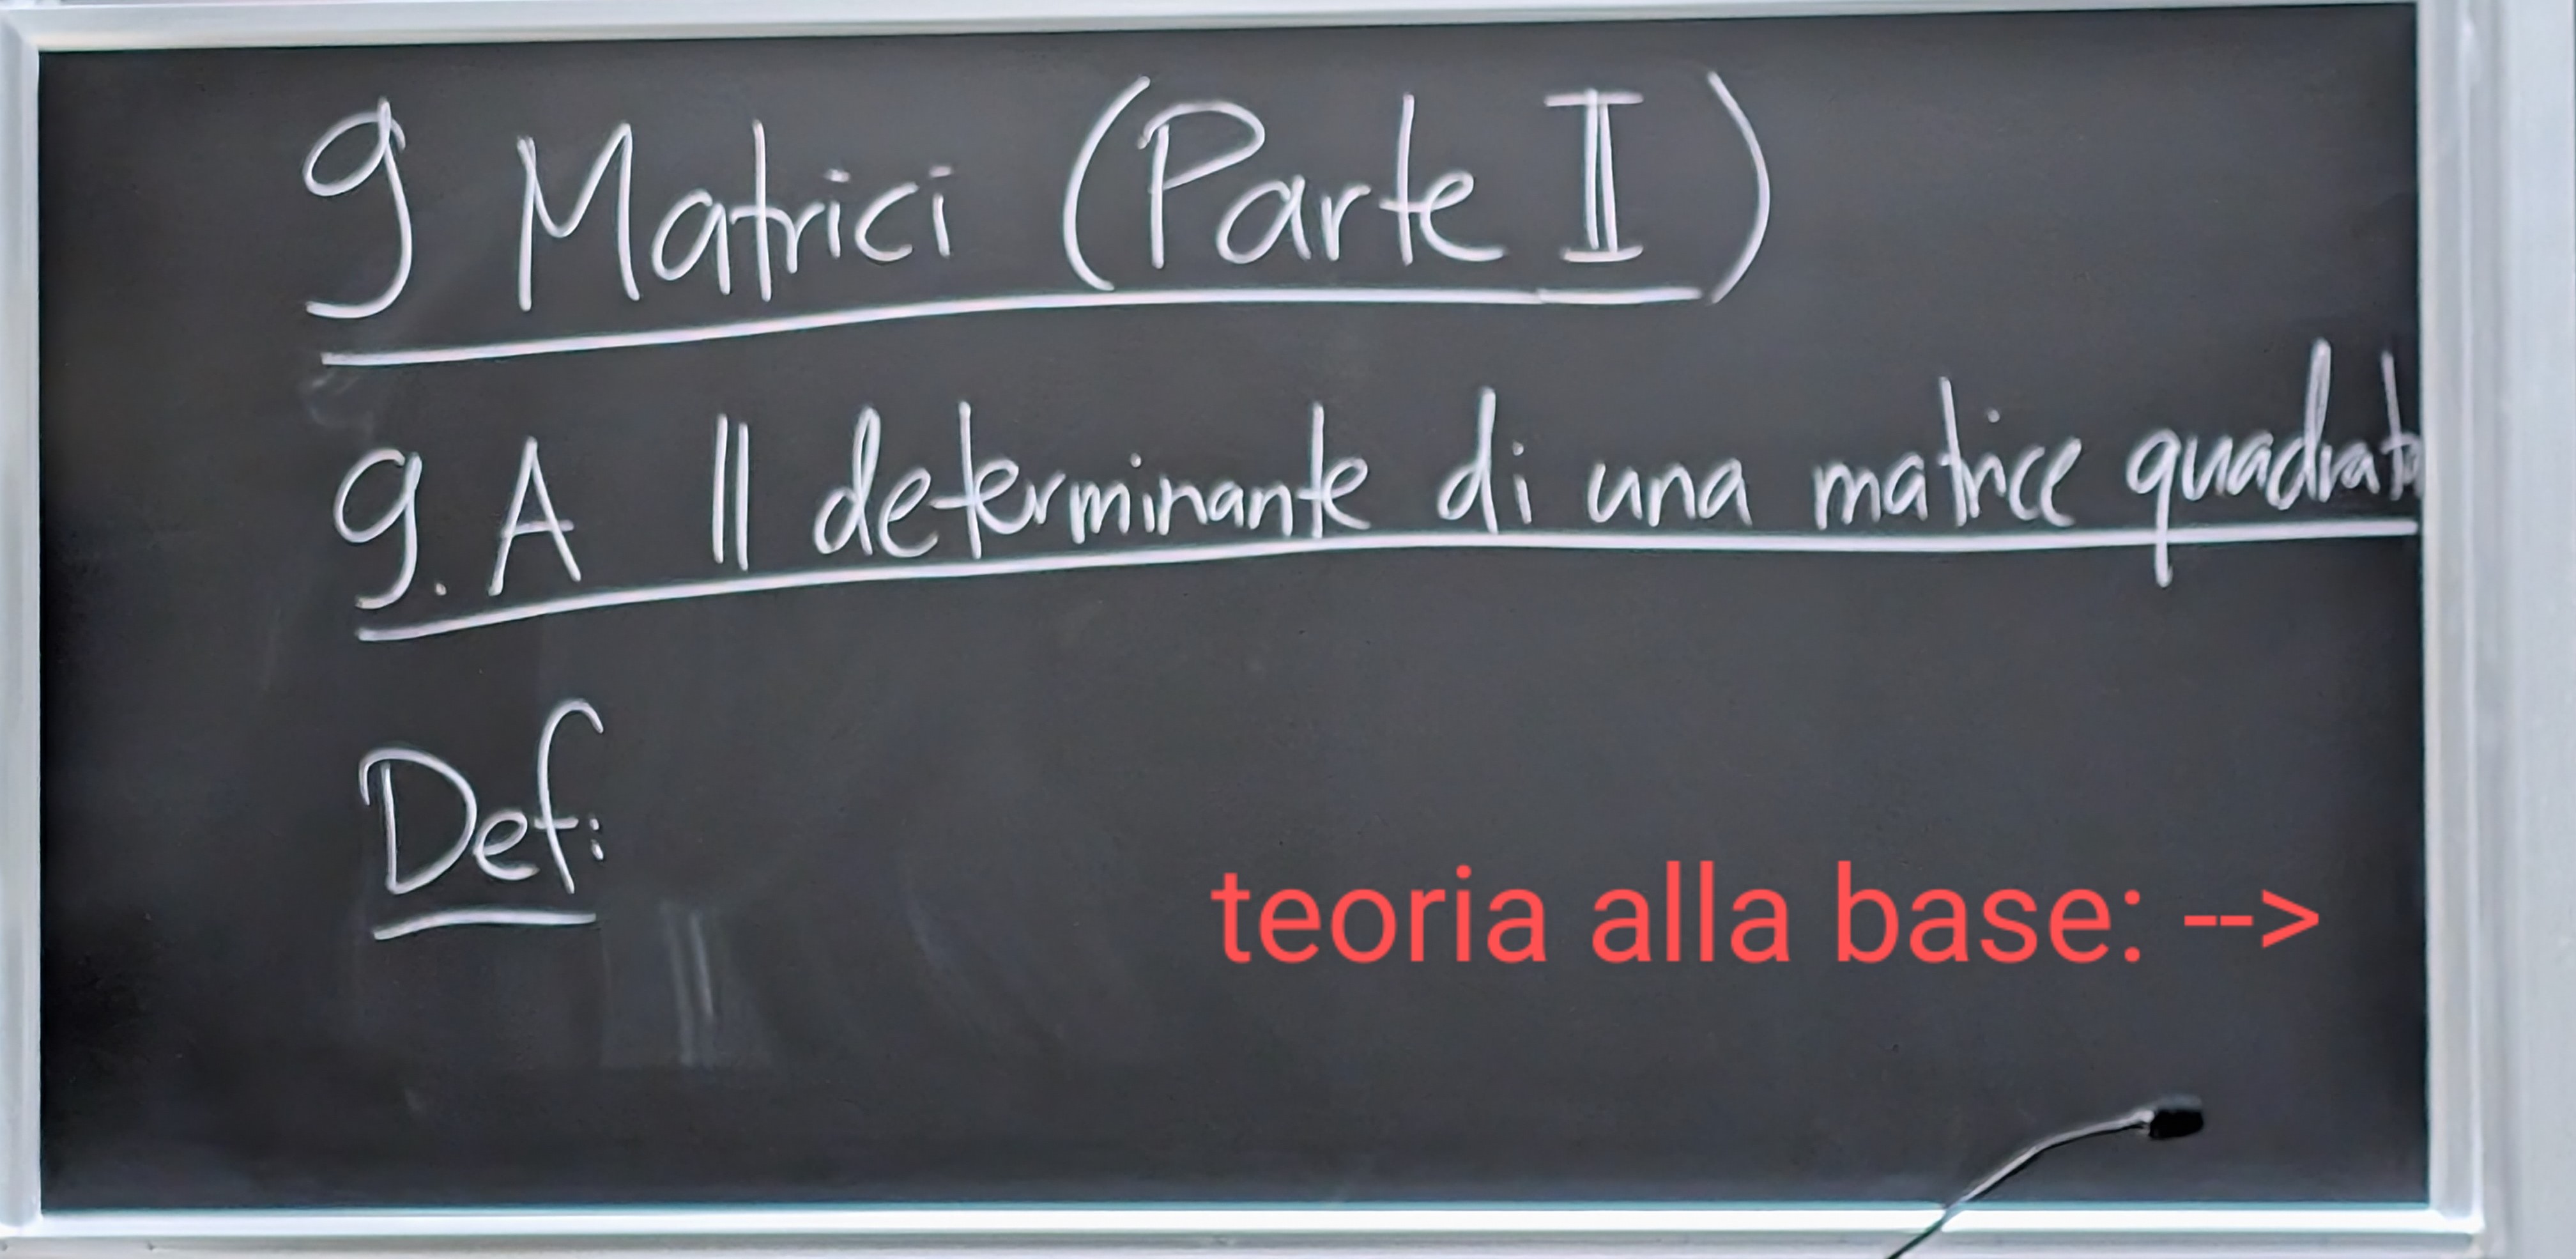 9 Matrici (Parte II)
9.A Il determinante di una matrice quadrata
Def:
teoria alla base: -->